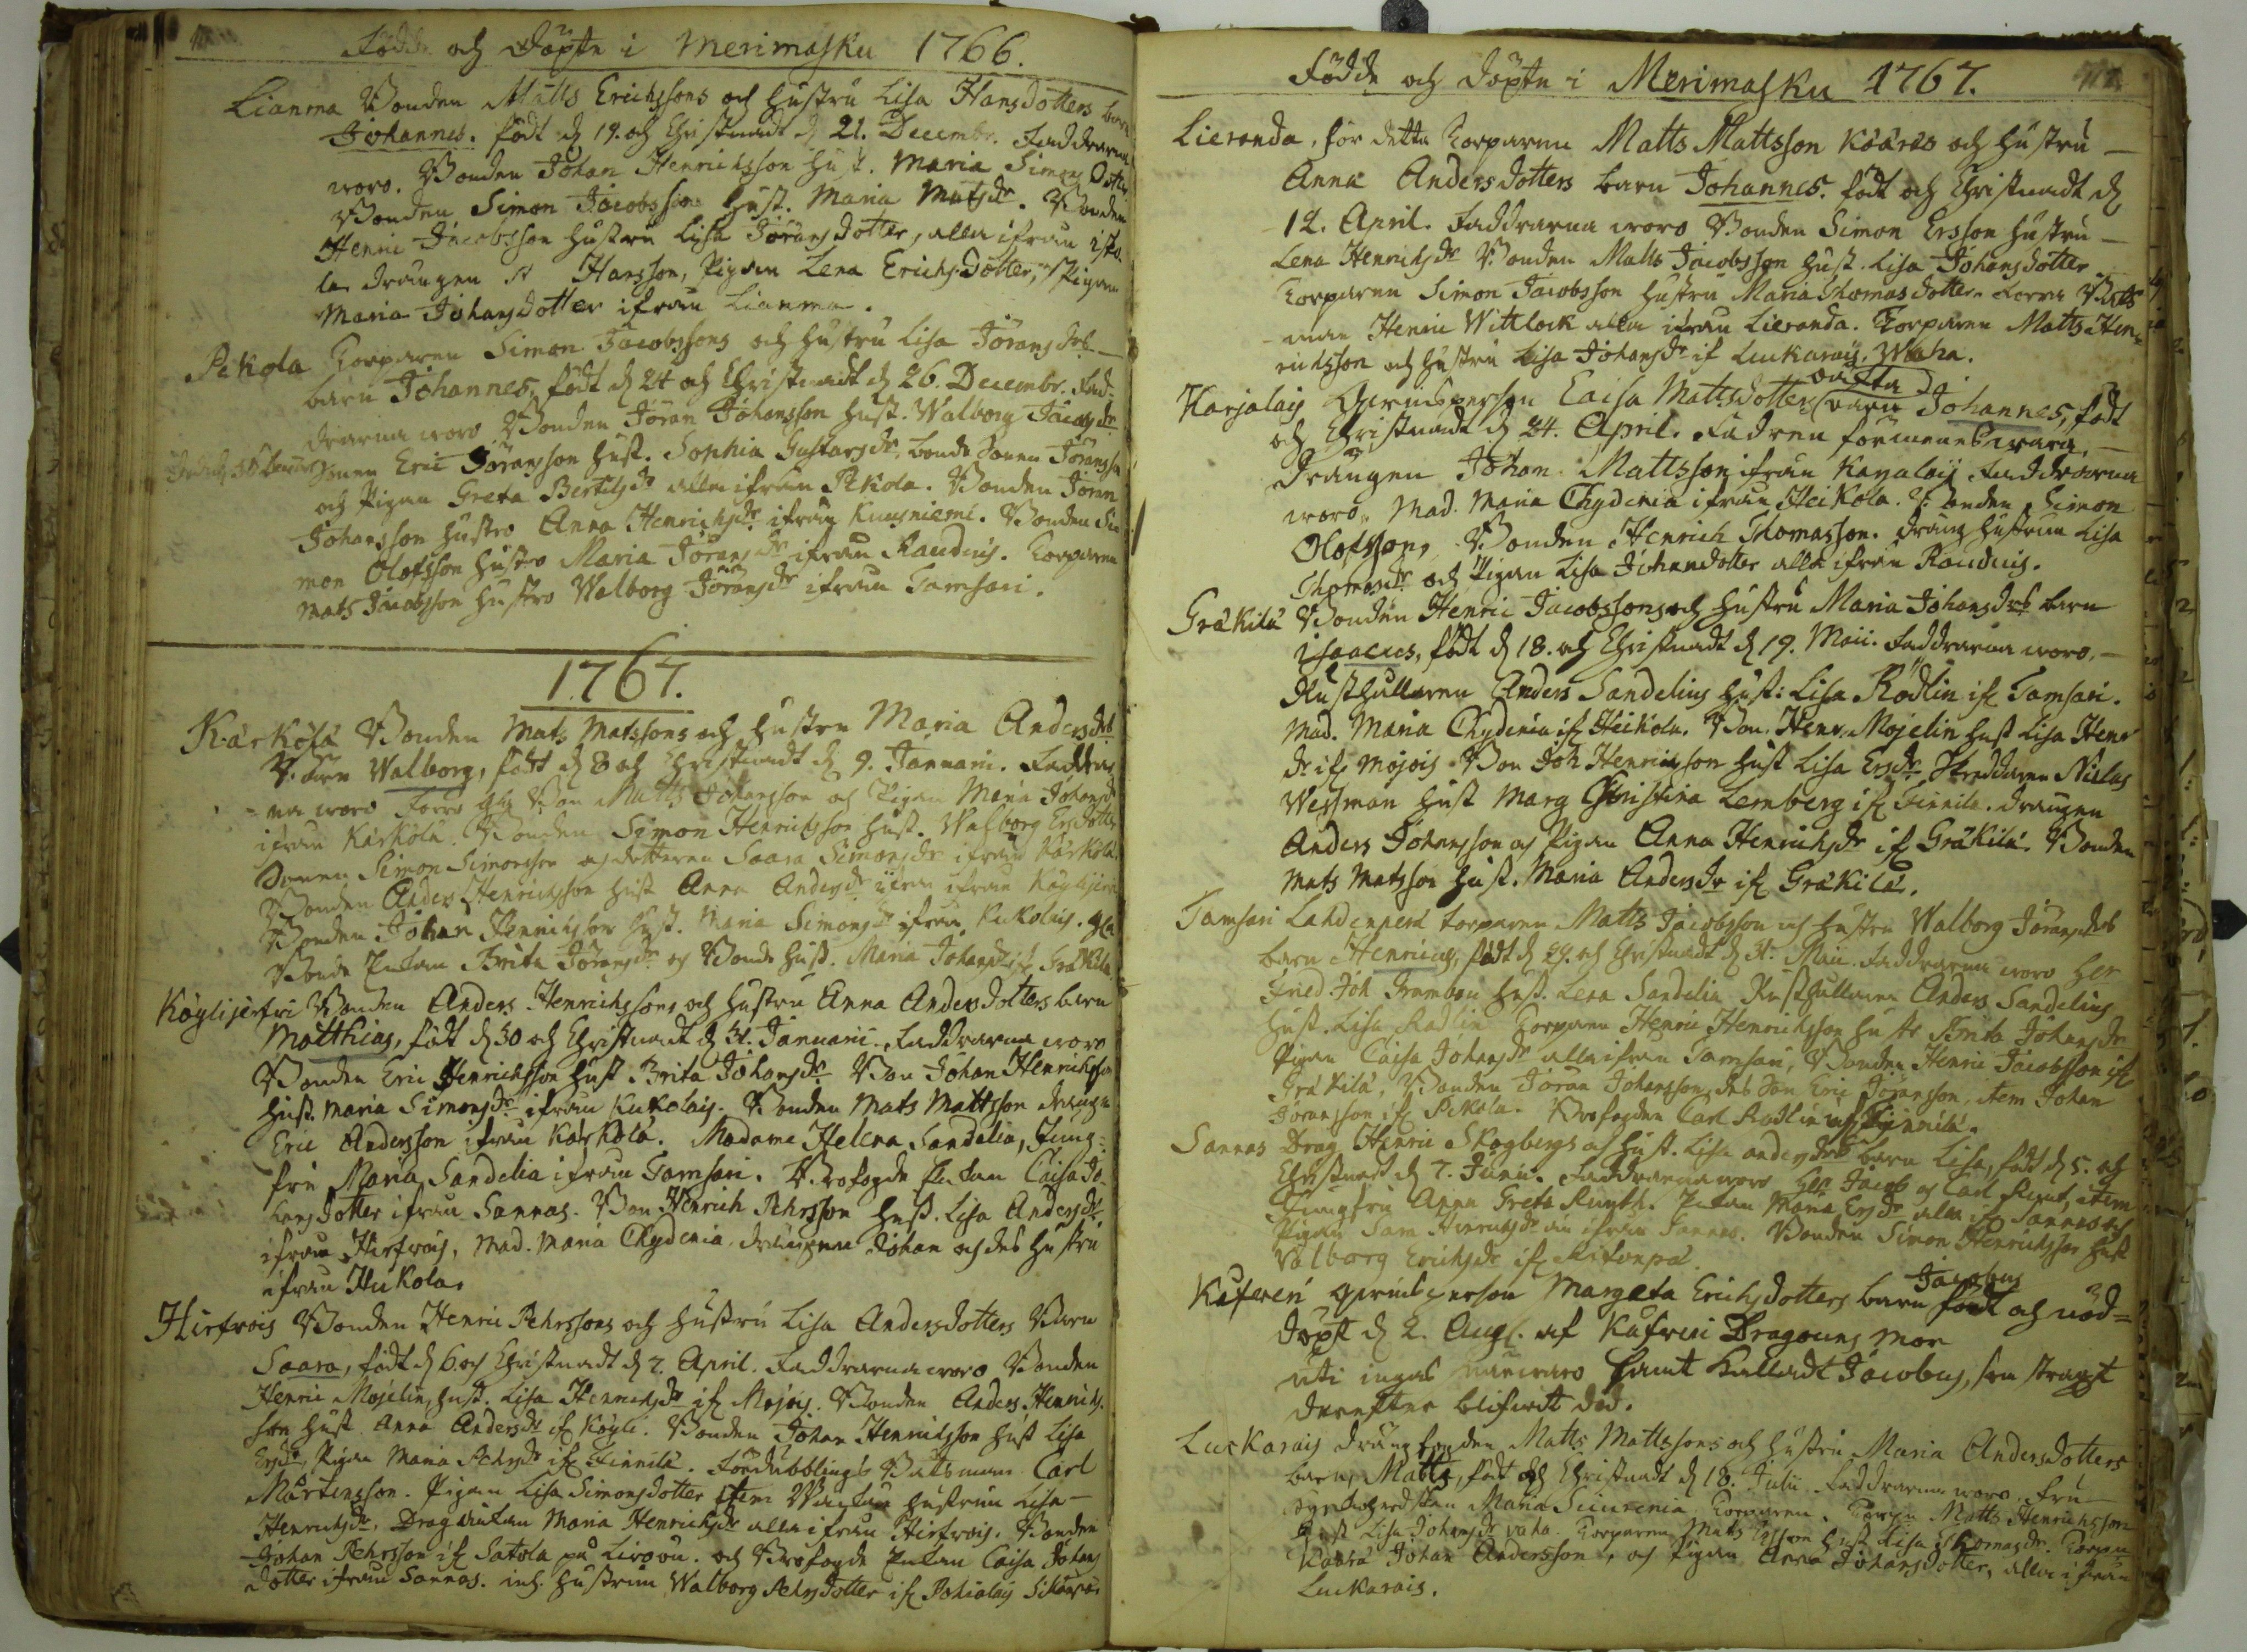 Födde och döpte i Merimasku 1766.
Lianma Bonden Matts Erichssons och hustru Lisa Hansdotters barn
Johannes. födt d 19. och Christnadt d 21. Decembr. Faddrarna
woro. Bonden Johan Henrichsson hust. Maria Simons Dotter
Bonden Simon Jacobsson hust. Maria Matsdr. Bonden
Henric Jacobsson hustru Lisa Jöransdotter, alla ifrån
la drängen Hansson, Pigan Lena Erichsdotter, Pigan
Maria Johansdotter ifrån Lianma.
Pekola Torparen Simon Jacobssons och hustru Lisa Jöransdrs
barn Johannes, födt d 24 och Christnadt d 26. Decembr. Fad-
drarna woro Bonden Jöran Johansson hust. Walborg Jacobsdr
Eric Jöransson hust. Sophia Gustavsdr, bonde Sonen Jöransson
och Pigan Greta Bertilsdr alla ifrån Pekola. Bonden Jöran
Johansson hustro Anna Henrichsdr ifrån Kuusniemi. Bonden Si-
mon Olofsson hustro Maria Jöransdr ifrån Rauduis. Torparen
Mats Jacobsson hustro Walborg Jöransdr ifrån Tamsari.
1767.
Kärkölä Bonden Mats Matssons och hustru Maria Andersdrs
Barn Walborg, födt d 8 och Christnadt d 9. Januarii. Faddrar-
na woro Bon Matts Johansson och Pigan Maria Johansdr
ifrån Kärkölä. Bonden Simon Henrichsson hust. Walborg Ersdotter
Sonen Simon Simonsson och dotteren Saara Simonsdr ifrån Kärkölä
Bonden Anders Henrichsson hust Anna Andersdr ifrån Köylijerfvi
Bonden Johan Henrichsson hust. Maria Simonsdr ifrån Kukolais.
Bonde Enkan Brita Jöransdr och Bonde hust. Maria Johansdr if Gräkilä
Köylijerfvi Bonden Anders Henrichssons och hustru Anna Andersdotters barn
Matthias, födt d 30 och Christnadt d 31. Januarii. Faddrarna woro
Bonden Eric Henrichsson hust Brita Johansdr Bon Johan Henrichsson
hust. Maria Simonsdr ifrån Kukolais. Bonden Mats Mattsson drängen
Eric Andersson ifrån Kärkölä. Madame Helena Sandelia, Jung-
fru Maria Sandelia ifrån Tamsari. Brofogde Enkan Caisa Jo-
hansdotter ifrån Sannas. Bon Henrich Pehrsson hust. Lisa Andersdr.
ifrån Hirfvois, Mad. Maria Chydenia, drängen Johan och des hustru
ifrån Heikola.
Hirfvois Bonden Henric Pehrssons och hustru Lisa Andersdotters Barn
Saara, födt d 6. och Christnadt d 7. April. Faddrarna woro Bonden
Henric Mojelin, hust. Lisa Henrichsdr if Mojois. Bonden Anders Henrichs-
son hust Anna Andersdr if Köyli. Bonden Johan Henrichsson hust Lisa
Ersdr, Pigan Maria Pehrsdr if Finnilä. Fördubblings Båtsman Carl
Mårtensson. Pigan Lisa Simonsdotter item hustrun Lisa
Henrichsdr, Drag änkan Maria Henrichsdr alla ifrån Hirfvois. Bonden
Johan Pehrsson if Satola på Livoou. och Brofogde Enkan Caisa Johans
dotter ifrån Sannas. hustrun Walborg Pehrsdotter if
Födde och döpte i Merimasku 1767.
Lieranda, för detta Torparen Matts Mattsson Kåäres och hustru
Anna Andersdotters barn Johannes. födt och Christnadt d
12. April. Faddrarna woro Bonden Simon Ersson hustru
Lena Henrichsdr Bonden Matts Jacobsson hust. Lisa Johansdotter
Torparen Simon Jacobsson hustru Maria Thomasdotter. Båts
man Henric Wittlock alla ifrån Lieranda. Torparen Matts Hen-
richsson och hustru Lisa Johansdr if Luckarais. Waha.
Karjalais Qvinsperson Caisa Mattsdotters oächta barn Johannes, födt
och Christnadt d 24. April. Fadren förmenes wara,
Drängen Johan Mattsson ifrån Karjalais Faddrarna
woro, Mad. Maria Chydenia ifrån Heikola. Bonden Simon
Olofsson, Bonden Henrich Thomasson. dräng hustrun Lisa
Thomasdr och Pigan Lisa Johansdotter alla ifrån Rauduis.
Gräkilä Bonden Henric Jacobssons och hustru Maria Johansdrs barn
Isaacus, födt d 18. och Christnadt d 19. Maii. Faddrarna woro,
Rusthållaren Anders Sandelius hust: Lisa Rödlin if Tamsari.
Mad. Maria Chydenia if Heikola. Bon. Henr. Mojelin hust Lisa Henr
dr if Mojois Bon Joh Henricsson hust Lisa Ersdr Skreddaren Niclas
Wessman hust Marg Christina Lemberg if Finnilä. drängen
Anders Johansson och Pigan Anna Henrichsdr if Gräkilä. Bonden
Mats Matsson hust. Maria Andersdr if Gräkilä.
Tamsari Lahdenperä torparen Matts Jacobsson och hustru Walborg Jöransdrs
barn Henricus, födt d 29. och Christnadt d 31. Maii. Faddrarna woro Her
Fried. Joh. hust. Lena Sandelia Rusthållaren Anders Sandelius
hust. Lisa Rödlin Torparen Henric Henricksson hustr Brita Johansdr
Pigan Caisa Johansdr alla ifrån Tamsari, Bonden Henric Jacobsson if
Gräkilä, Bonden Jöran Johansson, des Son Eric Jöransson, item Johan
Jöransson if Pekola. Brofogden Carl Rödlin af Finnilä.
Sannas Drag Henric Skogbergs och hust. Lisa Andersdrs barn Lisa, födt d 5. och
Christnadt d 7. Junii. Faddrarna woro Her Jacob och Carl item
Jungfru Anna Greta Enkan Maria Ersdr alla if Sannas och
Pigan Sara Henrichsdr ifrån Sannas. Bonden Simon Henrichsson hust
Valborg Erichsdr if
Kuferi qvinsperson Margeta Erichsdotters barn Jacobus födt och nöd-
döpt d 2. Aug. af Kuferi Dragouns mor
uti ingas närwaro samt kalladt Jacobus, som straxt
derefter blifvit död.
Luckarais Matts Mattssons och hustru Maria Andersdotters
barn, Matts, födt och Christnadt d 18. Julii. Faddrarna woro, Fru
Maria Torparen Matts Henrichsson
hust Lisa Johansdr vaha. Torparen Mats Ersson hust Lisa Thomasdr.
Johan Andersson, och Pigan Anna Johansdotter, alla ifrån
Luckarais.